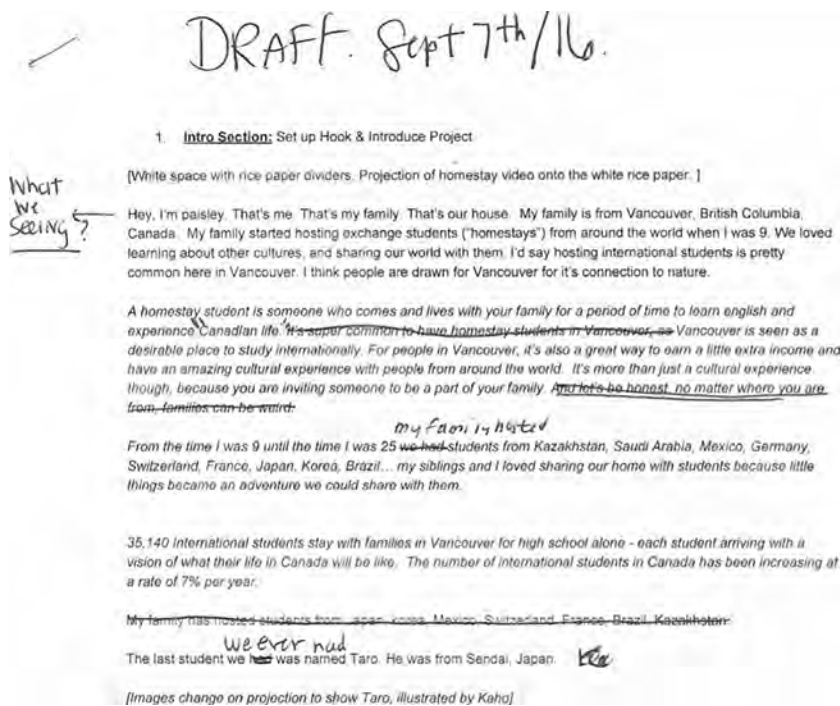 DRAFT. Sept 7th/16.
1. Intro Section: Set up Hook & Introduce Project
[White space with rice paper dividers. Projection of homestay video onto the white rice paper. ]
What
we
seeing?
Hey, I'm paisley. That's me. That's my family. That's our house. My family is from Vancouver, British Columbia,
Canada. My family started hosting exchange students ("homestays") from around the world when I was 9. We loved
learning about other cultures, and sharing our world with them. I'd say hosting international students is pretty
common here in Vancouver. I think people are drawn for Vancouver for it's connection to nature.
A homestay student is someone who comes and lives with your family for a period of time to learn english and
experience Canadian life. It's super common to have homestay students in Vancouver, as Vancouver is seen as a
desirable place to study internationally. For people in Vancouver, it's also a great way to earn a little extra income and
have an amazing cultural experience with people from around the world. It's more than just a cultural experience
though, because you are inviting someone to be a part of your family. And let's be honest, no matter where you are
from, families can be weird.
my family hosted
From the time I was 9 until the time I was 25 we had students from Kazakhstan, Saudi Arabia, Mexico, Germany,
Switzerland, France, Japan, Korea, Brazil... my siblings and I loved sharing our home with students because little
things became an adventure we could share with them.
35,140 International students stay with families in Vancouver for high school alone - each student arriving with a
vision of what their life in Canada will be like. The number of international students in Canada has been increasing at
a rate of 7% per year.
My family has hosted students from Japan, korea, Mexico, Switzerland, France, Brazil, Kazakhstan.
we ever had
The last student we had was named Taro. He was from Sendai, Japan.
[Images change on projection to show Taro, illustrated by Kaho]